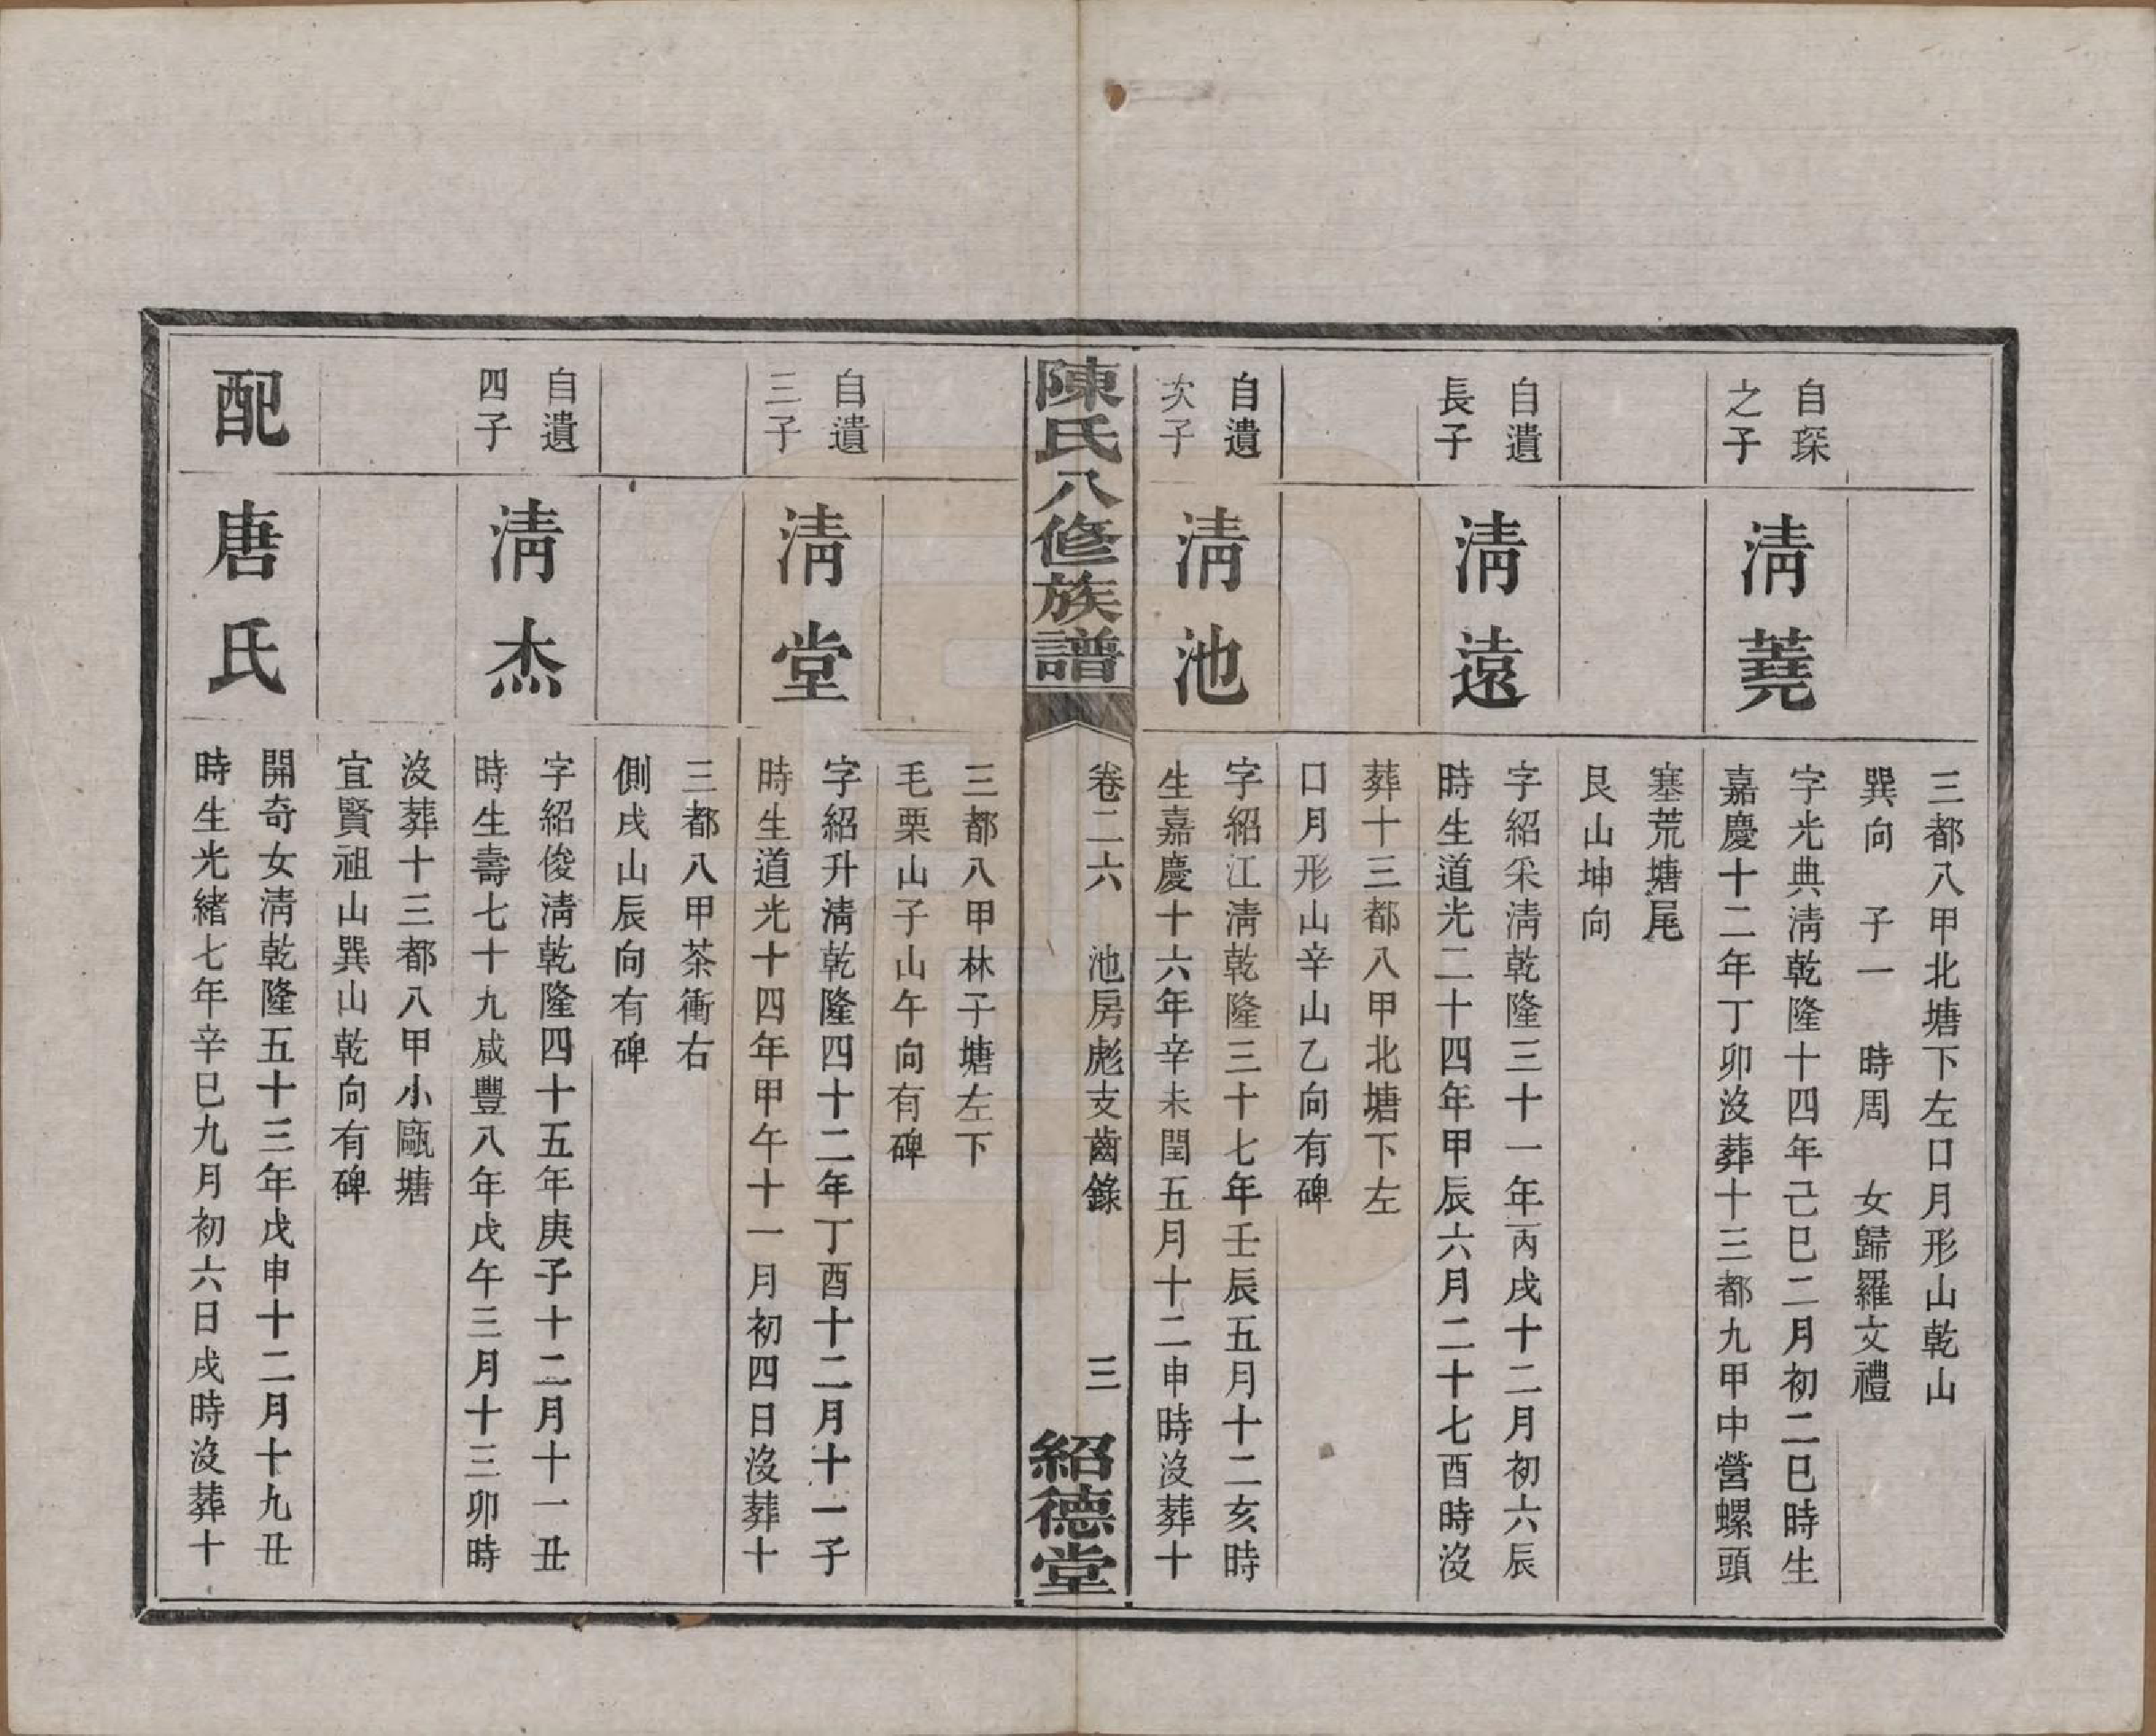 三都八甲北塘下左口月形山乾山
巽向　子一　時周　女歸羅文禮
自琛
之子
清蕘
字光典清乾隆十四年己巳二月初二巳時生
嘉慶十二年丁卯沒葬十三都九甲中營螺頭
塞荒塘尾
艮山坤向
自遺
長子
清遠
字紹采清乾隆三十一年丙戌十二月初六辰
時生道光二十四年甲辰六月二十七酉時沒
葬十三都八甲北塘下左
口月形山辛山乙向有碑
自遺
次子
清池
字紹江清乾隆三十七年壬辰五月十二亥時
生嘉慶十六年辛未閏五月十二申時沒葬十
陳氏八修族譜
卷二六　池房彪支齒錄
三
紹德堂
三都八甲林子塘左下
毛栗山子山午向有碑
自遺
三子
清堂
字紹升清乾隆四十二年丁酉十二月十一子
時生道光十四年甲午十一月初四日沒葬十
三都八甲茶衝右
側戌山辰向有碑
自遺
四子
清杰
字紹俊清乾隆四十五年庚子十二月十一丑
時生壽七十九咸豐八年戊午三月十三卯時
沒葬十三都八甲小甌塘
宜賢祖山巽山乾向有碑
配
唐氏
開奇女清乾隆五十三年戊申十二月十九丑
時生光緒七年辛巳九月初六日戌時沒葬十